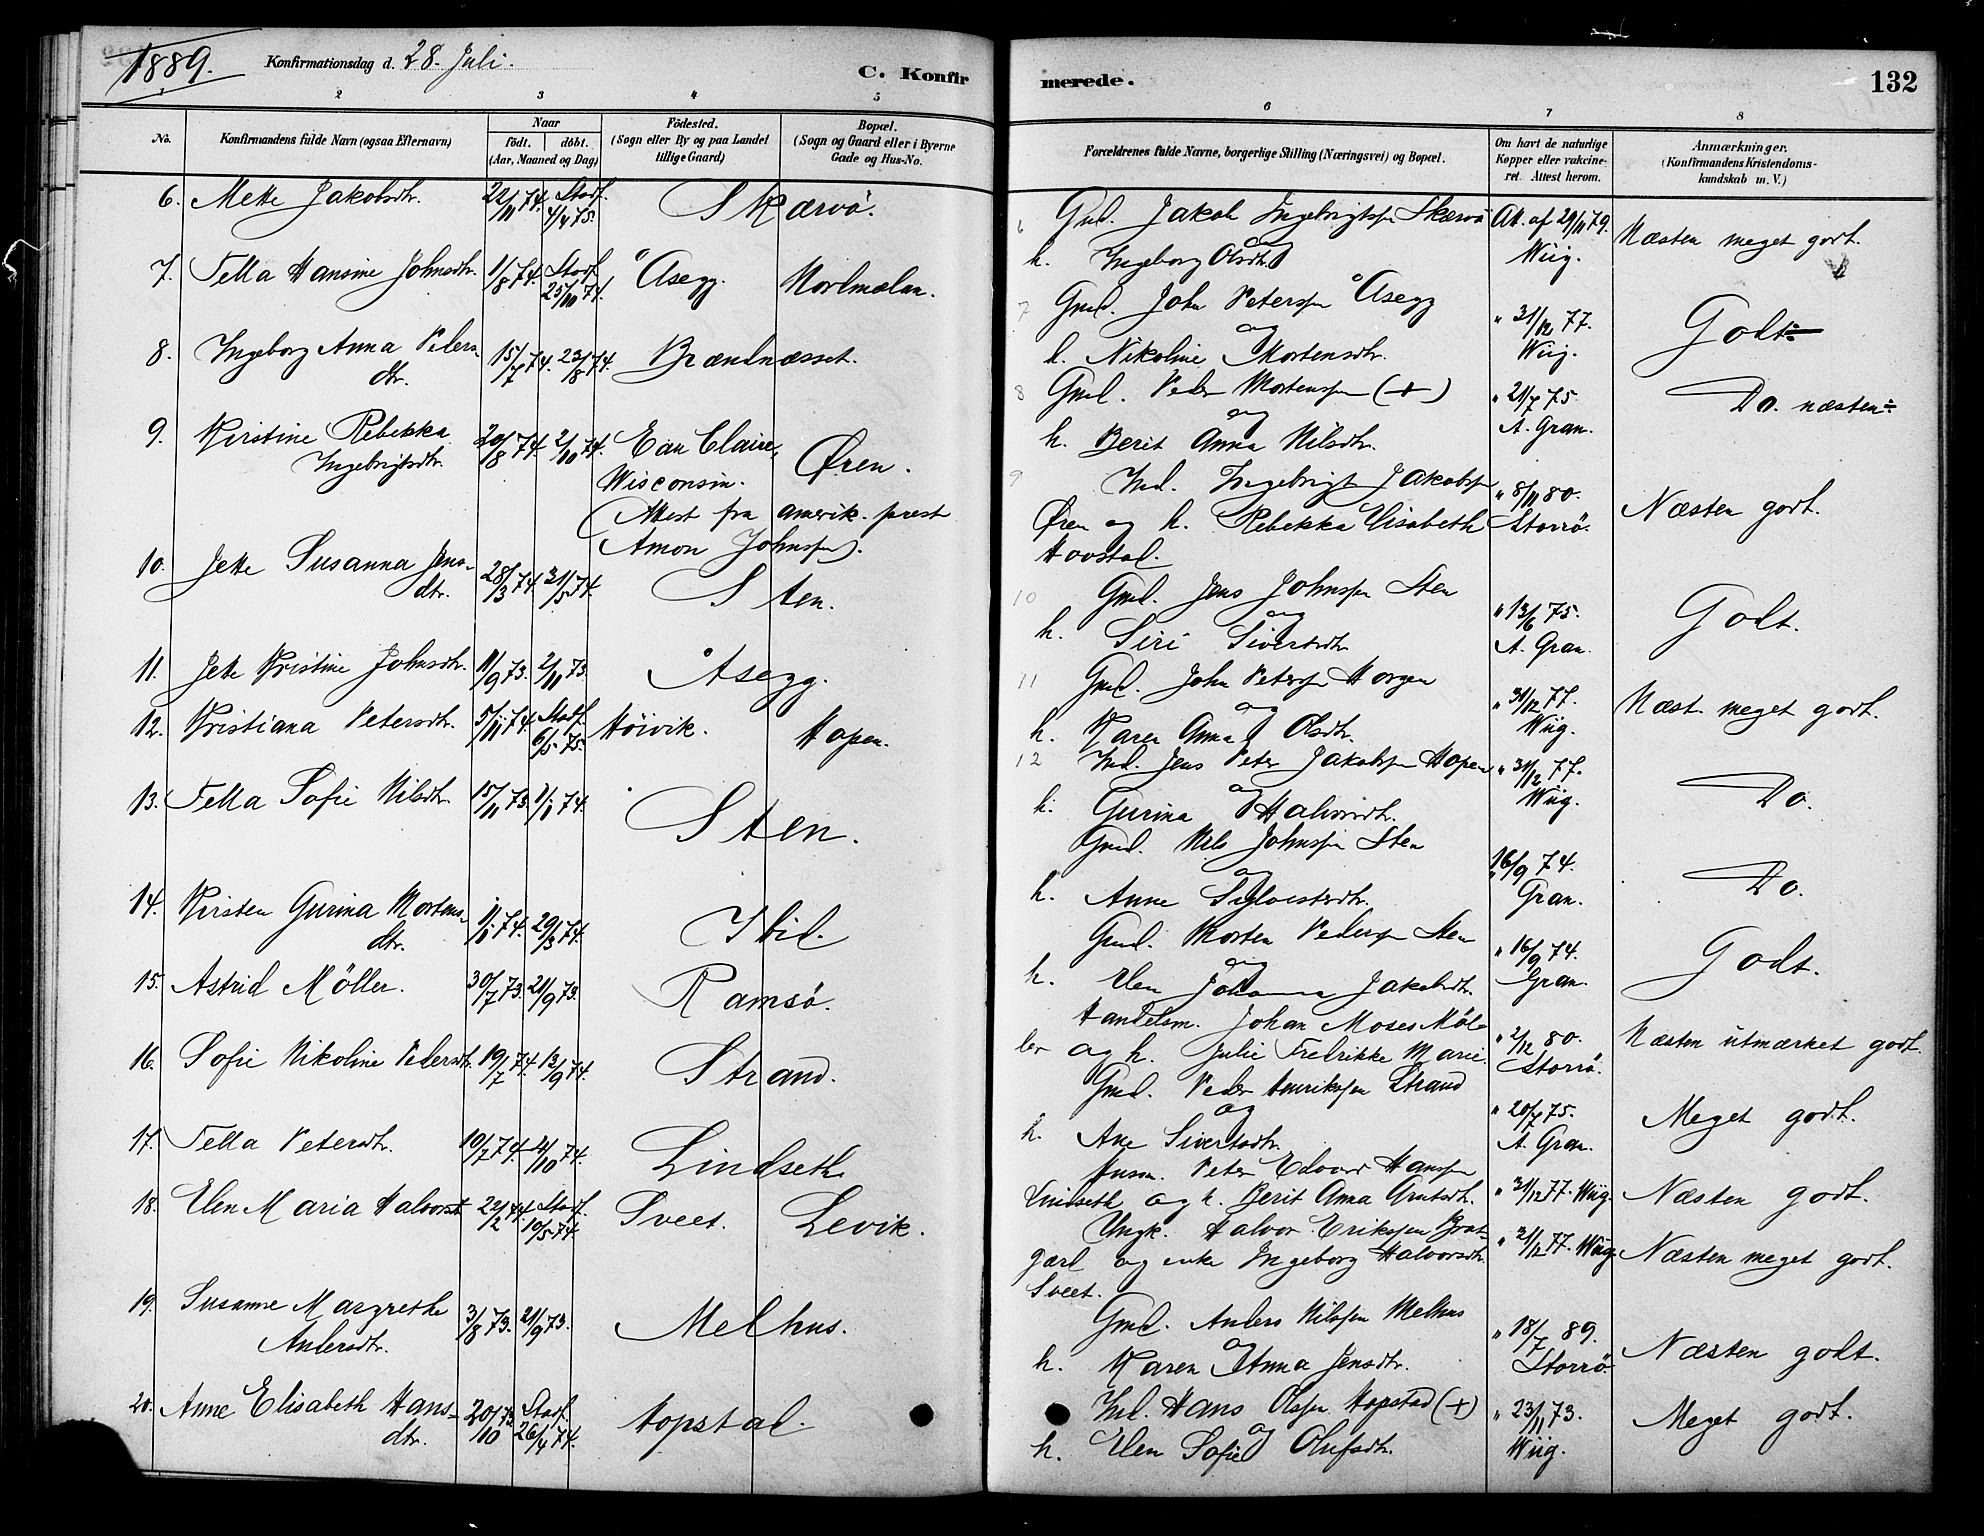 1889.
Konfirmationsdag d. 28. Juli.
C. Konfir
merede.
132
2 3 4 5
6 7 8
No.
Konfirmandens fulde Navn (ogsaa Efternavn)
Naar
födt. döbt.
(Aar, Maaned og Dag)
Födested.
(Sogn eller By og paa Landet
tillige Gaard)
Bopæl.
(Sogn og Gaard eller i Byerne
Gade og Hus-No.
Forældrenes fulde Navne, borgerlige Stilling (Næringsvei) og Bopæl.
Om havt de naturlige
Kopper eller vakcine-
ret. Attest herom.
Anmærkninger.
(Konfirmandens Kristendoms-
kundskab m. V.)
6. Mette Jakobsdtr. 22/11 74. Stadf. 4/4 75. Skærvö.
6 Gmd. Jakob Ingebrigtsen Skærvö Att. af 29/11 79. Næsten meget godt.
og
h. Ingeborg Olsdtr. Wiig.
7. Fella Hansine Johnsdtr. 1/8 74. Stadf. 25/10 74. Åsegg. Nordmælan.
7 Gmd. John Petersen Åsegg " 31/12 77. Godt÷
og
h. Nikoline Mortensdtr. Wiig.
8. Ingeborg Anna Peders- 15/7 74. 23/8 74. Brændnæsset.
dtr.
8 Gmd. Peder Mortensen (+) " 21/7 75. Do. næsten÷
og
h. Berit Anna Nilsdtr. A. Gran.
9. Kirstine Rebekka 20/8 74. 2/10 74. Eau Claire, Øren.
Ingebrigtsdtr. Wisconsin.
(Attest fra amerik. prest
Amon Johnsen).
9 Ind. Ingebrigt Jakobsen " 8/11 80. Næsten godt.
Øren og h. Rebekka Elisabeth Storrö.
Hovstad.
10. Jette Susanna Jens- 28/3 74. 31/5 74. Sten.
dtr.
10 Gmd. Jens Johnsen Sten " 13/6 75. Godt.
og
h. Siri Sivertsdtr. A. Gran.
11. Jette Kristine Johnsdtr. 11/9 73. 2/11 73. Åsegg.
11 Gmd. John Petersen Horgen " 31/12 77. Næst. meget godt.
og
h. Karen Anna Olsdtr. Wiig.
12. Kristiana Petersdtr. 5/11 74. Stadf. 6/5 75. Höivik. Hopen.
12 Ind. Jens Peter Jakobsen Hopen " 31/12 77. Do.
og
h. Gurina Halvorsdtr. Wiig.
13. Fella Sofie Nilsdtr. 15/11 73. 1/1 74. Sten.
Gmd. Nils Johnsen Sten " 16/9 74. Do.
og
h. Anne Sylvestersdtr. Gran.
14. Kirsten Gurina Mortens- 11/1 74. 29/3 74. Ihil.
dtr.
Gmd. Morten Pedersen Sten " 16/9 74. Godt.
og
h. Elen Johanna Jakobsdtr. Gran.
15. Astrid Möller. 30/7 73. 21/9 73. Ramsö.
Handelsm. Johan Moses Möl- " 2/12 80. Næsten utmærket godt.
ler og h. Julie Fredrikke Marie. Storrö.
16. Sofie Nikoline Pedersdtr. 19/7 74. 13/9 74. Strand.
Gmd. Peder Henriksen Strand " 20/7 75. Meget godt.
og
h. Ane Sivertsdtr. A. Gran.
17. Fella Petersdtr. 10/7 74. 4/10 74. Lindseth
Husm. Peter Edvard Hansen
Lindseth og h. Berit Anna Arntsdtr. " 31/12 77. Wiig. Næsten godt.
18. Elen Maria Halvorsd. 22/2 74. Stadf. 10/5 74. Sveet. Levik.
Ungk. Halvor Eriksen Brat-
gærd og enke Ingeborg Halvorsdtr. " 31/12 77. Wiig. Næsten meget godt.
Sveet.
19. Susanne Margrethe 3/8 73. 21/9 73. Melhus.
Andersdtr.
Gmd. Anders Nilssen Melhus " 18/7 89. Næsten godt.
og
h. Karen Anna Jensdtr. Storrö
20. Anne Elisabeth Hans- 20/10 73. Stadf. 26/4 74. Hopstad.
dtr.
Ind. Hans Olsen Hopstad (+) " 23/11 73. Meget godt.
og
h. Elen Sofie Olufsdtr. Wiig.